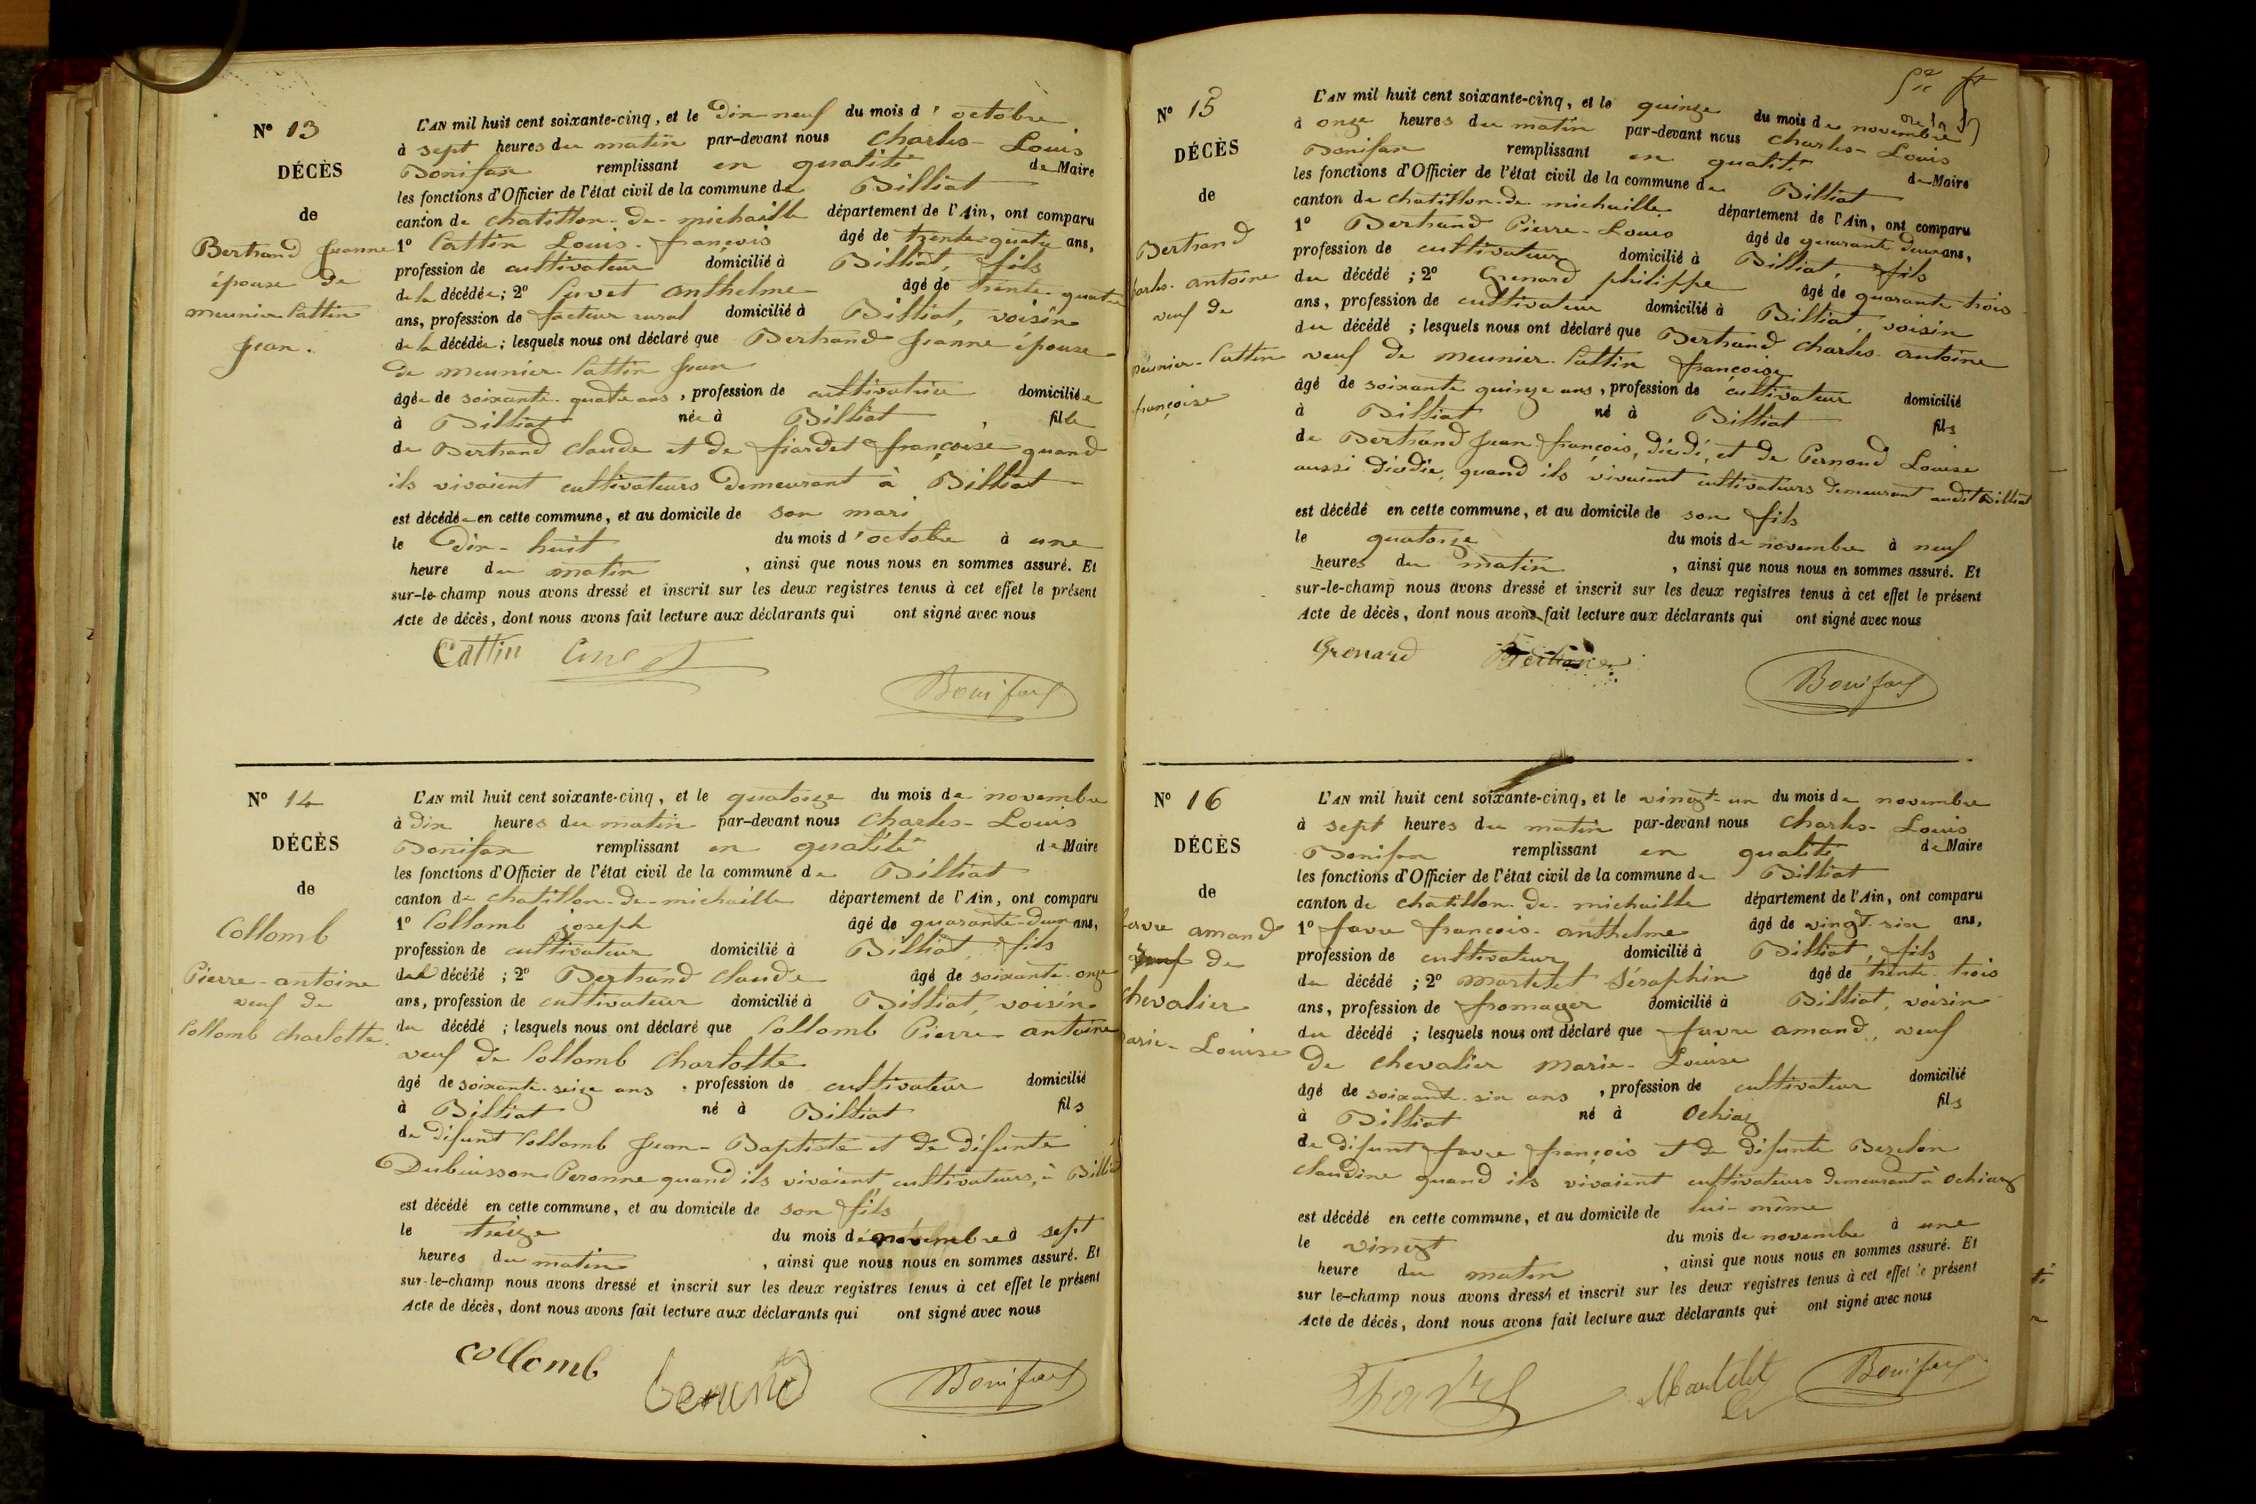 N° 13
DÉCÈS
de
Bertrand Jeanne
épouse de
meunier Cattin
Jean.
L'AN mil huit cent soixante-cinq, et le Dix neuf du mois d'octobre
à sept heures du matin par-devant nous Charles-Louis
Bonifax remplissant en qualité de Maire
les fonctions d'Officier de l'état civil de la commune de Billiat
canton de chatillon-de-michaille département de l'Ain, ont comparu
1° Cattin Louis-françois âgé de trente-quatre ans,
profession de cultivateur domicilié à Billiat, fils
de la décédée; 2° Curvet anthelme âgé de trente-quatre
ans, profession de facteur rural domicilié à Billiat, voisin
de la décédée; lesquels nous ont déclaré que Bertrand Jeanne épouse
de meunier-Cattin Jean
âgée de soixante-quatre ans, profession de cultivatrice domiciliée
à Billiat née à Billiat fille
de Bertrand claude et de fiardet françoise quand
ils vivaient cultivateurs demeurant à Billiat
est décédée en cette commune, et au domicile de son mari
le Dix-huit du mois d'octobre à une
heure du matin, ainsi que nous nous en sommes assuré. Et
sur-le-champ nous avons dressé et inscrit sur les deux registres tenus à cet effet le présent
Acte de décès, dont nous avons fait lecture aux déclarants qui ont signé avec nous
Cattin Bonifax
N° 14
DÉCÈS
de
Collomb
Pierre-antoine
veuf de
Collomb Charlotte.
L'AN mil huit cent soixante-cinq, et le quatorze du mois de novembre
à dix heures du matin par-devant nous Charles-Louis
Bonifax remplissant en qualité de Maire
les fonctions d'Officier de l'état civil de la commune de Billiat
canton de chatillon-de-michaille département de l'Ain, ont comparu
1° Collomb joseph âgé de quarante-deux ans,
profession de cultivateur domicilié à Billiat, fils
du décédé; 2° Bertrand claude âgé de soixante-onze
ans, profession de cultivateur domicilié à Billiat, voisin
du décédé; lesquels nous ont déclaré que Collomb Pierre-antoine
veuf de Collomb Charlotte
âgé de soixante-seize ans, profession de cultivateur domicilié
à Billiat né à Billiat fils
de défunt Collomb Jean-Baptiste et de défunte
Dubuisson Peronne quand ils vivaient cultivateurs, à Billiat
est décédé en cette commune, et au domicile de son fils
le treize du mois de novembre à sept
heures du matin, ainsi que nous nous en sommes assuré. Et
sur-le-champ nous avons dressé et inscrit sur les deux registres tenus à cet effet le présent
Acte de décès, dont nous avons fait lecture aux déclarants qui ont signé avec nous
collomb Bonifax
N° 15
DÉCÈS
de
Bertrand
harles-antoine
veuf de
meunier-Cattin
françoise
L'AN mil huit cent soixante-cinq, et le quinze du mois de novembre
à onze heures du matin par-devant nous Charles-Louis
Bonifax remplissant en qualité de Maire
les fonctions d'Officier de l'état civil de la commune de Billiat
canton de chatillon-de-michaille département de l'Ain, ont comparu
1° Bertrand Pierre-Louis âgé de quarante deux ans,
profession de cultivateur domicilié à Billiat, fils
du décédé; 2° Grenard philippe âgé de quarante-trois
ans, profession de cultivateur domicilié à Billiat, voisin
du décédé; lesquels nous ont déclaré que Bertrand Charles-antoine
veuf de meunier-Cattin françoise
âgé de soixante quinze ans, profession de cultivateur domicilié
à Billiat né à Billiat fils
de Bertrand Jean-françois, dicdi, et de Pernoud Louise
aussi dicdie, quand ils vivaient cultivateurs demeurant audit Billiat
est décédé en cette commune, et au domicile de son fils
le quatorze du mois de novembre à neuf
heures du matin, ainsi que nous nous en sommes assuré. Et
sur-le-champ nous avons dressé et inscrit sur les deux registres tenus à cet effet le présent
Acte de décès, dont nous avons fait lecture aux déclarants qui ont signé avec nous
Grenard Bonifax
N° 16
DÉCÈS
de
favre amand
veuf de
Chevalier
arie-Louise
L'AN mil huit cent soixante-cinq, et le vingt-un du mois de novembre
à sept heures du matin par-devant nous Charles-Louis
Bonifax remplissant en qualité de Maire
les fonctions d'Officier de l'état civil de la commune de Billiat
canton de chatillon-de-michaille département de l'Ain, ont comparu
1° favre françois-anthelme âgé de vingt-six ans,
profession de cultivateur domicilié à Billiat, fils
du décédé; 2° martelet Séraphin âgé de trente-trois
ans, profession de fromager domicilié à Billiat, voisin
du décédé; lesquels nous ont déclaré que favre amand, veuf
de chevalier marie-Louise
âgé de soixante-six ans, profession de cultivateur domicilié
à Billiat né à Ochiaz fils
de défunt favre françois et de défunte Bezelon
claudine quand ils vivaient cultivateurs demeurant à Ochiaz
est décédé en cette commune, et au domicile de lui-même
le vingt du mois de novembre à une
heure du matin, ainsi que nous nous en sommes assuré. Et
sur le-champ nous avons dressé et inscrit sur les deux registres tenus à cet effet le présent
Acte de décès, dont nous avons fait lecture aux déclarants qui ont signé avec nous
Favre Martelet Bonifax